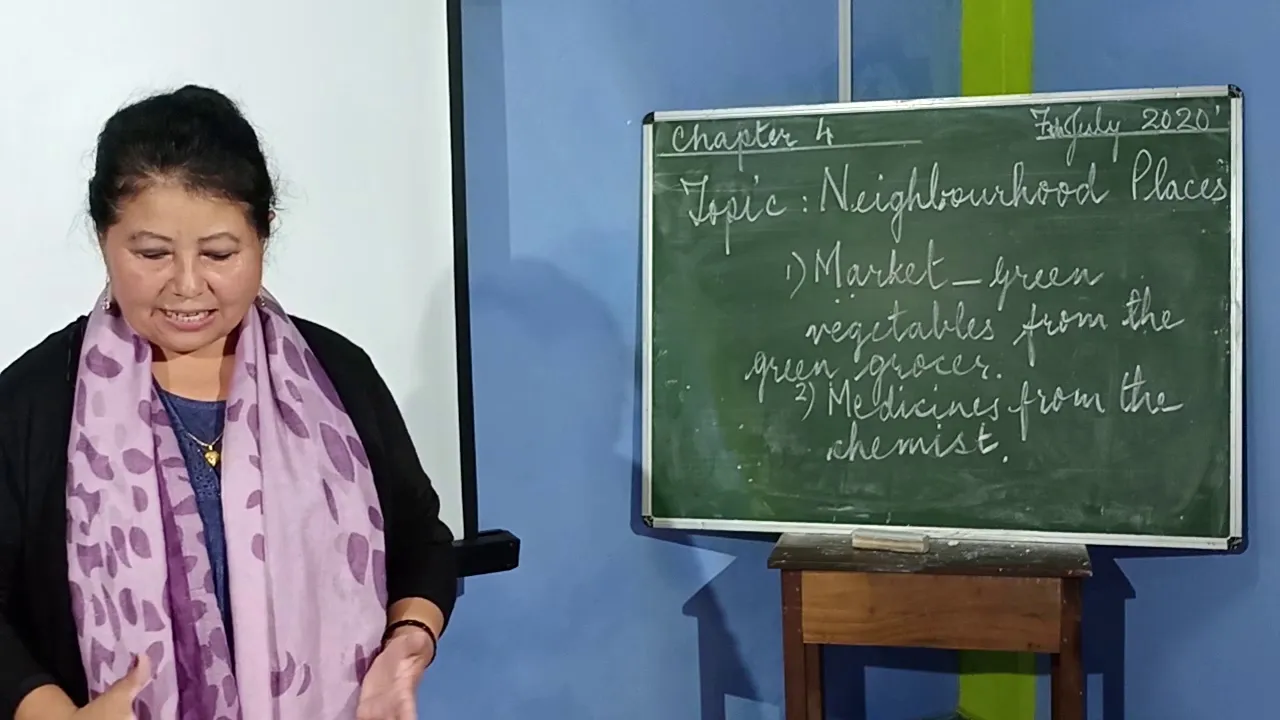 Chapter 4
7th July 2020
Topic : Neighbourhood Places
1) Market - green
vegetables from the
green grocer.
2) Medicines from the
chemist.